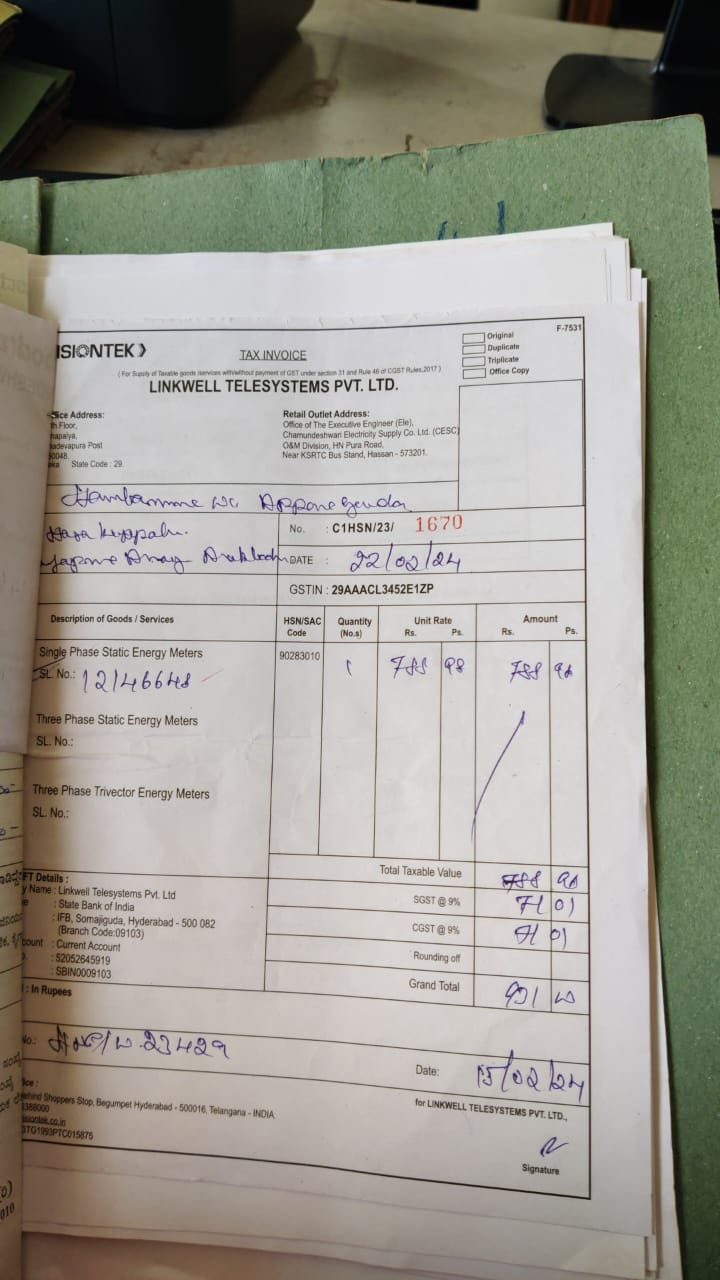 F-7531
Original
Duplicate
Triplicate
Office Copy
ISIONTEK
TAX INVOICE
( For Supply of Taxable goods /services with/without payment of GST under section 31 and Rule 46 of CGST Rules,2017 )
LINKWELL TELESYSTEMS PVT. LTD.
ice Address:
th Floor,
napalya,
adevapura Post
0048.
aka State Code : 29.
Retail Outlet Address:
Office of The Executive Engineer (Ele),
Chamundeshwari Electricity Supply Co. Ltd. (CESC)
O&M Division, HN Pura Road,
Near KSRTC Bus Stand, Hassan - 573201.
No. : C1HSN/23/ 1670
DATE : 22/02/24
GSTIN : 29AAACL3452E1ZP
Description of Goods / Services HSN/SAC Code Quantity (No.s) Unit Rate Rs. Ps. Amount Rs. Ps.
Single Phase Static Energy Meters 90283010 1 788 98 788 98
SL. No.: 12146648
Three Phase Static Energy Meters
SL. No.:
Three Phase Trivector Energy Meters
SL. No.:
Total Taxable Value 788 98
SGST @ 9% 71 01
CGST @ 9% 71 01
Rounding off
Grand Total 931 00
FT Details :
y Name : Linkwell Telesystems Pvt. Ltd
: State Bank of India
: IFB, Somajiguda, Hyderabad - 500 082
(Branch Code:09103)
count : Current Account
: 52052645919
: SBIN0009103
: In Rupees
No.: 23429
Date: 15/02/24
for LINKWELL TELESYSTEMS PVT. LTD.,
ice :
ehind Shoppers Stop, Begumpet Hyderabad - 500016, Telangana - INDIA
388000
isiontek.co.in
TG1993PTC015875
Signature